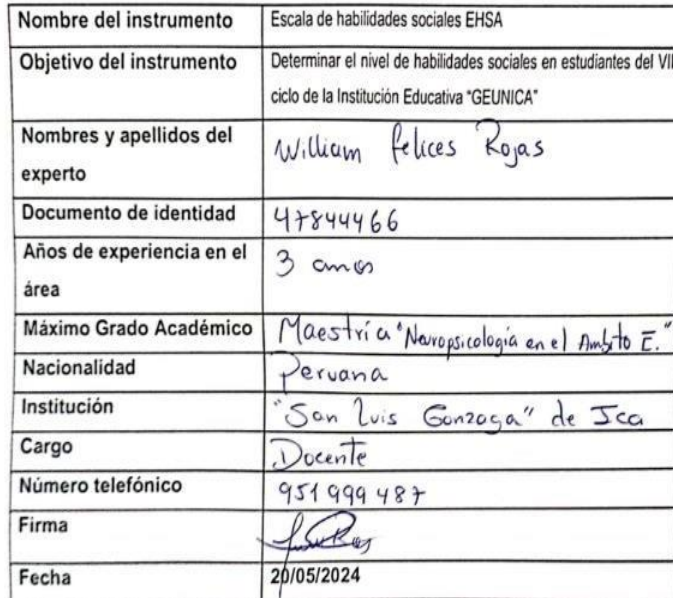 Nombre del instrumento Escala de habilidades sociales EHSA
Objetivo del instrumento Determinar el nivel de habilidades sociales en estudiantes del VII
ciclo de la Institución Educativa "GEUNICA"
Nombres y apellidos del
experto William Felices Rojas
Documento de identidad 47844466
Años de experiencia en el
área 3 anos
Máximo Grado Académico Maestría "Neuropsicología en el Ambito E."
Nacionalidad Peruana
Institución "San Luis Gonzaga" de Ica
Cargo Docente
Número telefónico 951 999 487
Firma
Fecha 20/05/2024